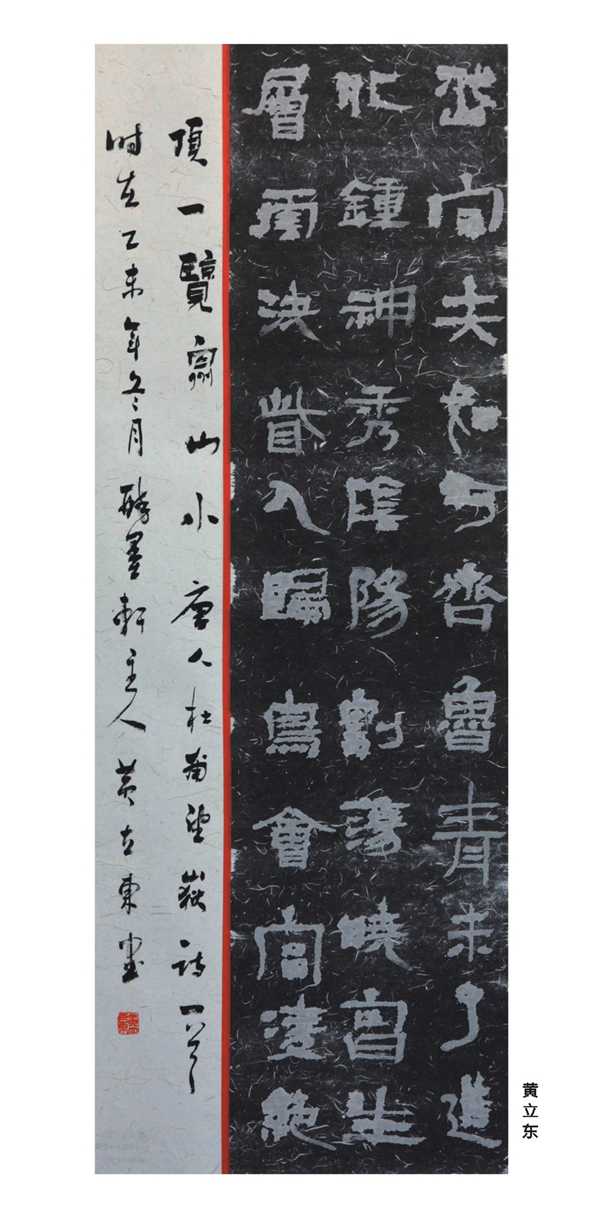 岱宗夫如何齊魯青未了造
化鍾神秀陰陽割蕩曉生
層決眥入歸鳥會當凌絶
頂一覽山小唐人杜甫望嶽詩一首
时在乙未年冬月醉墨軒主人黄立東書
黄立东